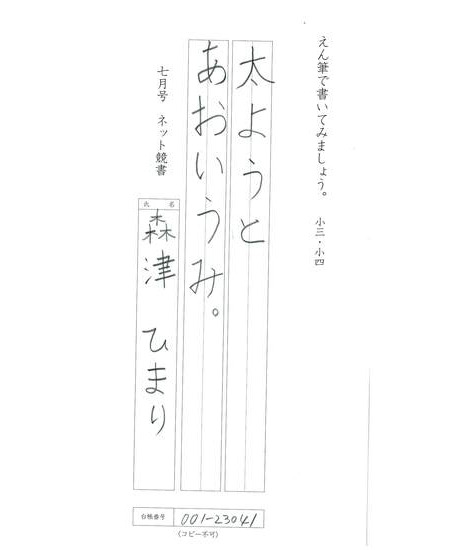 えん筆で書いてみましょう。 小三・小四
太ようと
あおいうみ。
七月号 ネット競書
氏名
森津 ひまり
台帳番号 001-23041
(コピー不可)